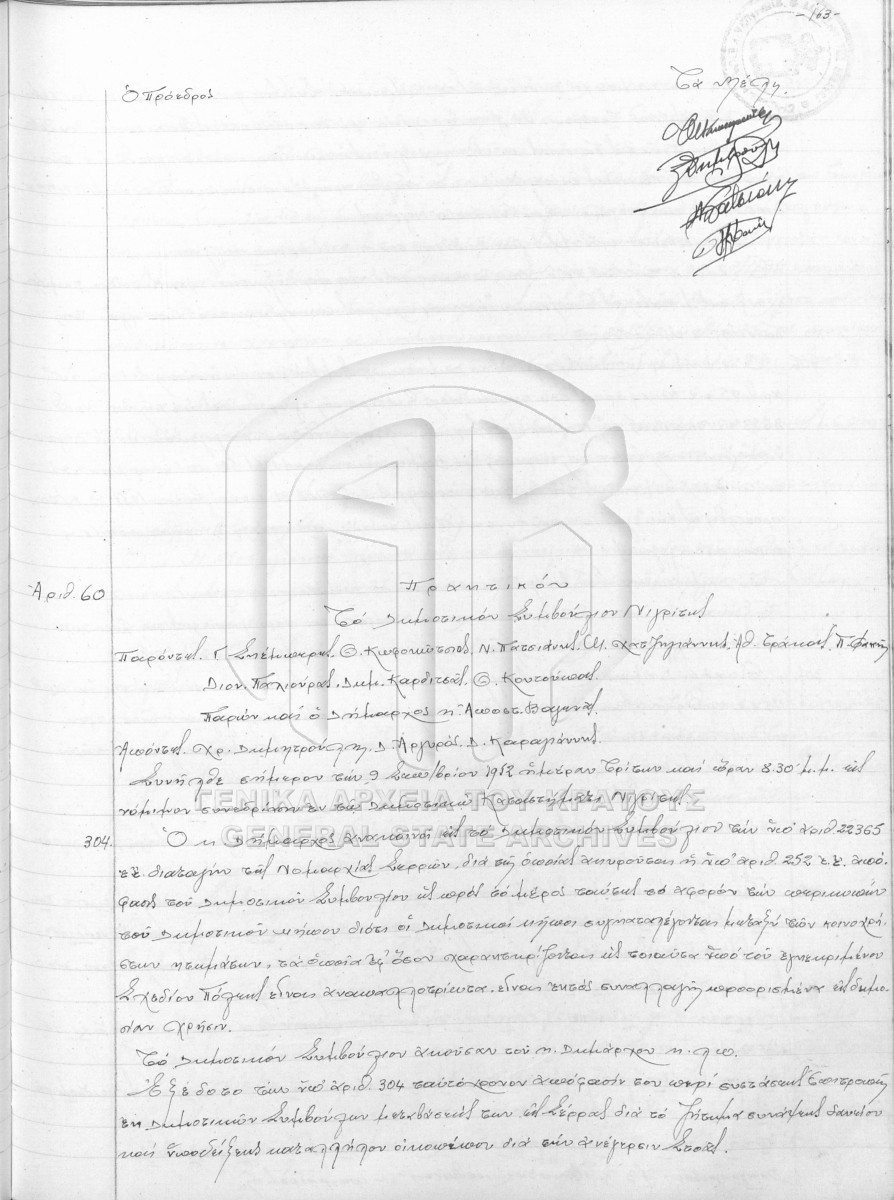 -163-
Ὁ Πρόεδρος
Τὰ Μέλη.
Ἀριθ. 60
Πρακτικόν
Τὸ Δημοτικόν Συμβούλιον Νιγρίτης
Παρόντες. Γ. Θ. Ν. Πατσιάνης, Μ. Χατζηγιάννης, Ἀθ. Τράκας, Π. Φακῆς
Διον. Παλιούρας, Δημ. Καρδιτσᾶς, Θ. Κουτούπας.
Παρών καὶ ὁ Δήμαρχος κ. Ἀποστ. Βαγενᾶς.
Ἀπόντες. Χρ. Δημητρούλης, Δ. Ἀργυρός, Δ. Καραγιάννης.
Συνῆλθε σήμερον τὴν 9 Σεπ/βρίου 1952 ἡμέραν Τρίτην καὶ ὥραν 8.30΄ μ.μ. εἰς
νόμιμον συνεδρίασιν ἐν τῷ Δημοτικῷ Καταστήματι Νιγρίτης.
ΓΕΝΙΚΑ ΑΡΧΕΙΑ ΤΟΥ ΚΡΑΤΟΥΣ
GENERAL STATE ARCHIVES
304. Ὁ κ. Δήμαρχος ἀνακοινοῖ εἰς τὸ Δημοτικόν Συμβούλιον τὴν ὑπ' ἀριθ. 22365
ἐ.ἔ. διαταγὴν τῆς Νομαρχίας Σερρῶν, διὰ τῆς ὁποίας ἀκυροῦται ἡ ὑπ' ἀριθ. 252 ἐ.ἔ. ἀπό-
φασις τοῦ Δημοτικοῦ Συμβουλίου ὡς πρὸς τὸ μέρος ταύτης τὸ ἀφορὸν τὴν περικοπὴν
τοῦ Δημοτικοῦ Κήπου διότι οἱ Δημοτικοί κῆποι συγκαταλέγονται μεταξὺ τῶν κοινοχρή-
στων κτημάτων, τὰ ὁποῖα ἐφ' ὅσον χαρακτηρίζονται ὡς τοιαῦτα ὑπὸ τοῦ ἐγκεκριμένου
Σχεδίου Πόλεως εἶναι ἀναπαλλοτρίωτα, εἶναι ἐκτὸς συναλλαγῆς προορισμένα εἰς δημο-
σίαν χρῆσιν.
Τὸ Δημοτικόν Συμβούλιον ἀκοῦσαν τοῦ κ. Δημάρχου κ.λ.π.
Ἐξέδοτο τὴν ὑπ' ἀριθ. 304 ταὐτόχρονον ἀπόφασίν του περὶ συστάσεως Ἐπιτροπῆς
ἐκ Δημοτικῶν Συμβούλων μεταβάσεώς των εἰς Σέρρας διὰ τὸ ζήτημα συνάψεως δανείου
καὶ ὑποδείξεως καταλλήλου οἰκοπέδου διὰ τὴν ἀνέγερσιν Στοᾶς.